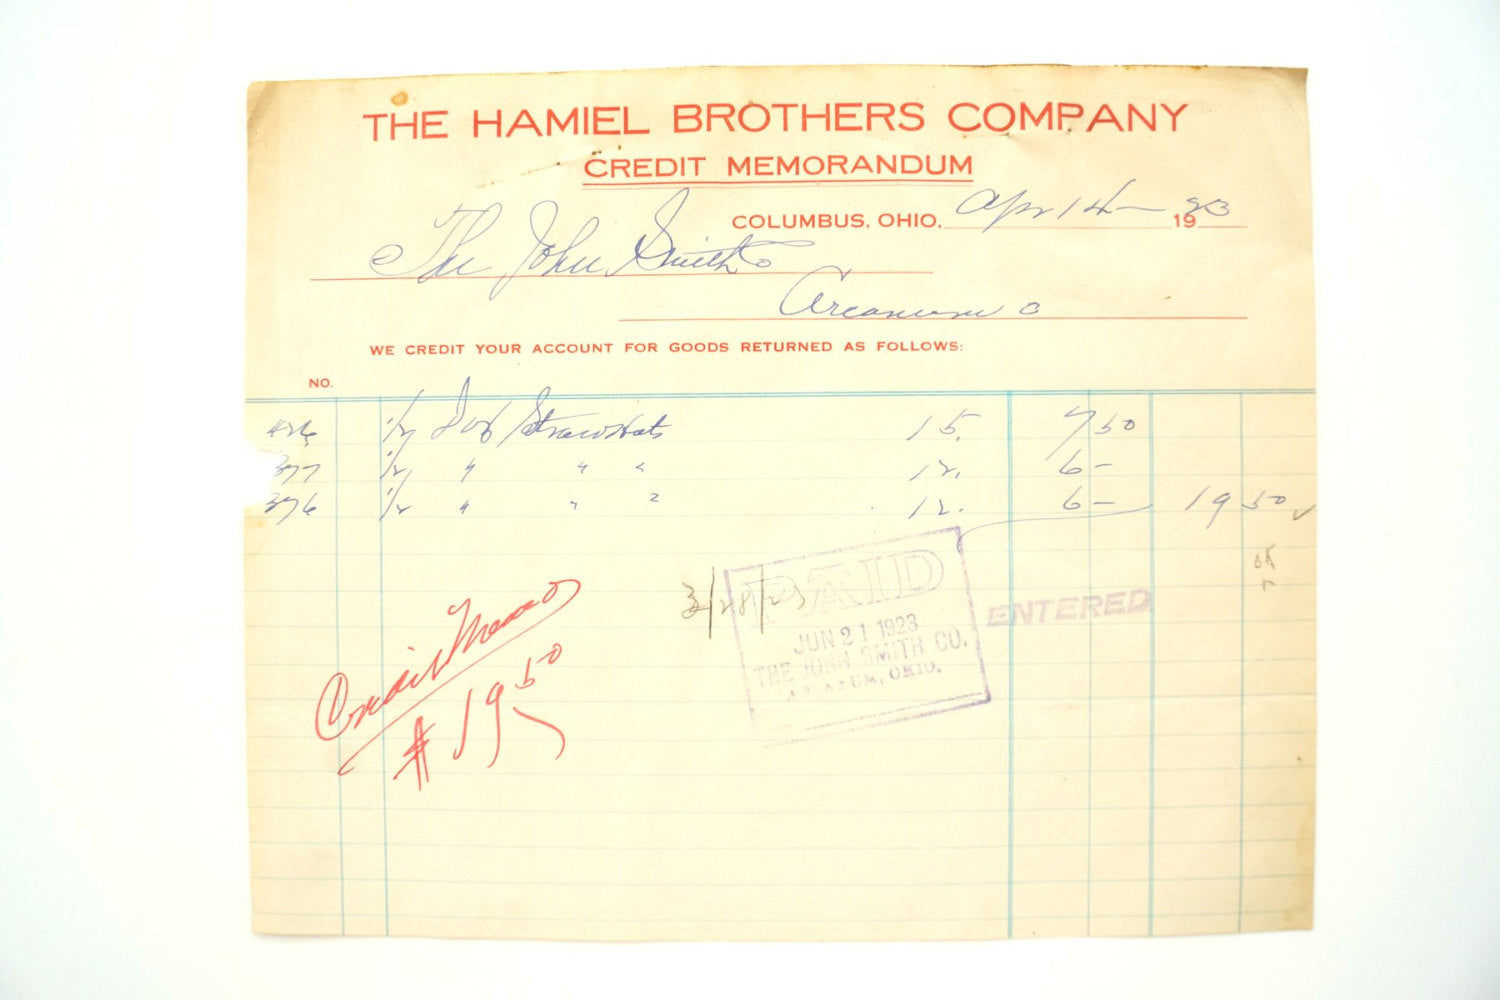 THE HAMIEL BROTHERS COMPANY
CREDIT MEMORANDUM
COLUMBUS, OHIO, Apr 14 — 1923
The John Smith Co
Arcanum O
WE CREDIT YOUR ACCOUNT FOR GOODS RETURNED AS FOLLOWS:
NO.
426 1/2 Doz Straw Hats 15. 7 50
377 1/2 " " " 12. 6 —
376 1/2 " " " 12. 6 — 19 50 ✓
OK
3/28/23
PAID
JUN 21 1923
THE JOHN SMITH CO.
OHIO.
ENTERED
Credit Memo
$ 19 50